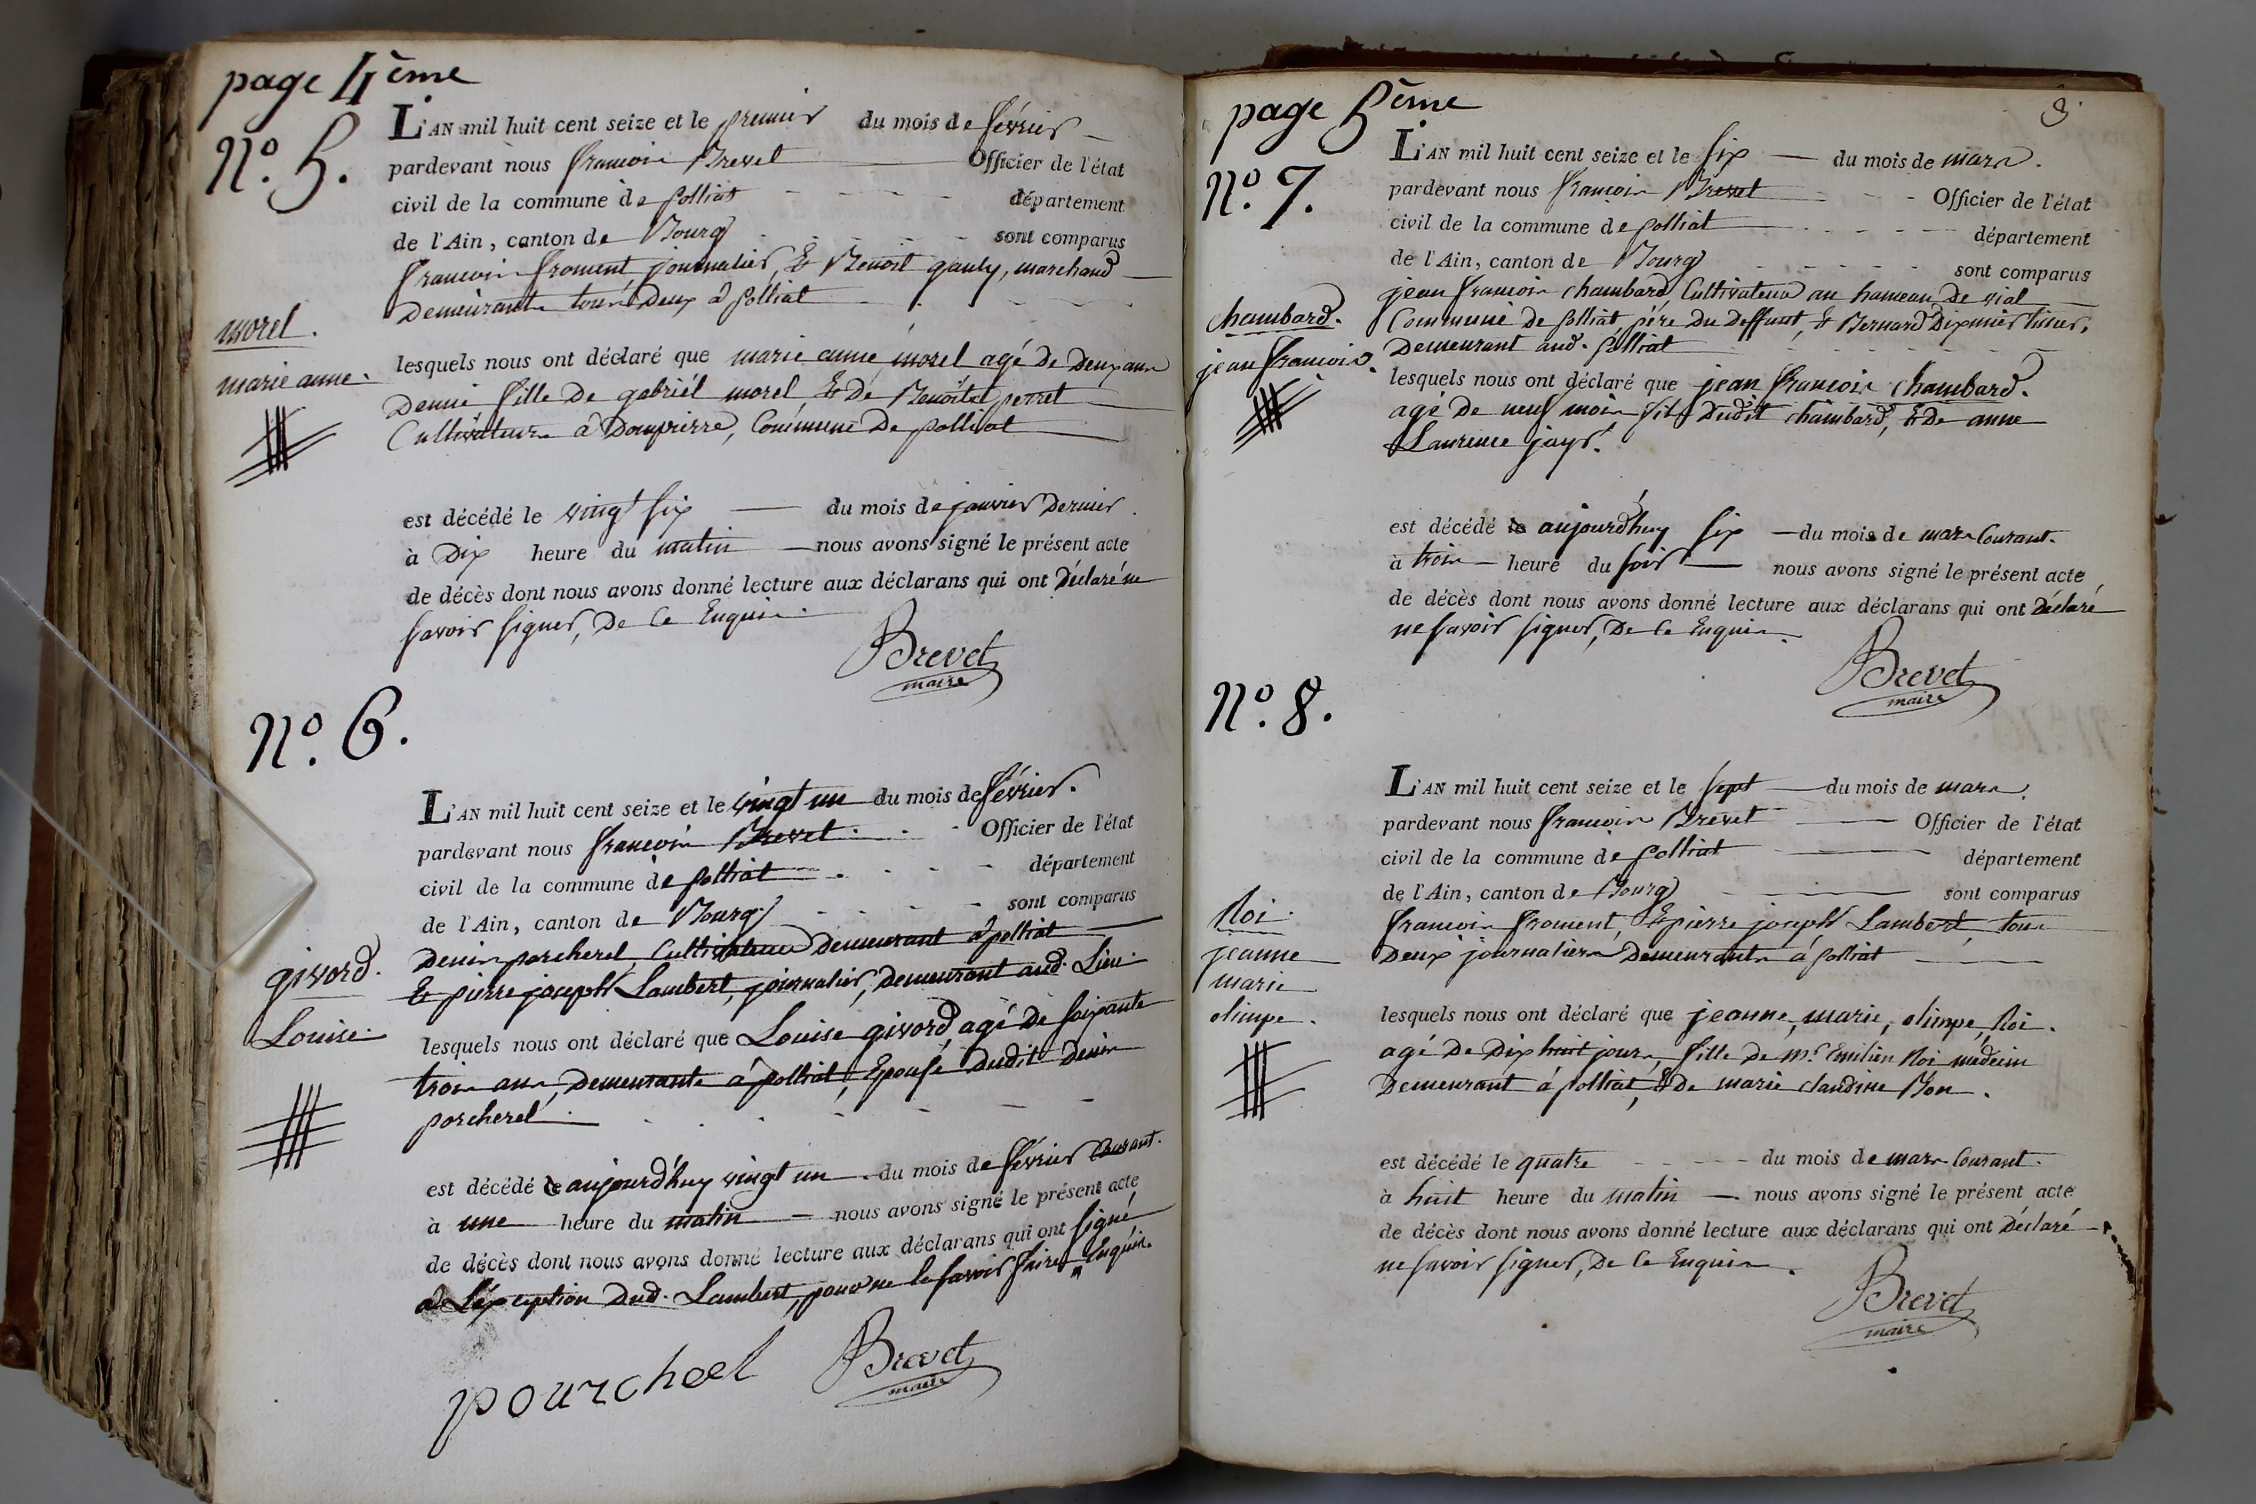 page 4ème
N.º 5.
L'AN mil huit cent seize et le premier du mois de février
pardevant nous françois Brevet Officier de l'état
civil de la commune de polliat département
de l'Ain, canton de Bourg sont comparus
françois froment journalier, & Benoit gauly, marchand
Demeurants tous Deux à polliat
morel.
marie anne.
lesquels nous ont déclaré que marie anne morel agé de Deux ans
Demie fille de gabriél morel, & de Benoîte perret
Cultivateurs à Dompierre, Commune De polliat
est décédé le vingt six du mois de janvier Dernier.
à Dix heure du matin nous avons signé le présent acte
de décès dont nous avons donné lecture aux déclarans qui ont Déclaré ne
savoir signer, De Ce Enquis.
Brevet
maire
N.º 6.
L'AN mil huit cent seize et le vingt un du mois de février.
pardevant nous françois Brevet. Officier de l'état
civil de la commune de polliat département
de l'Ain, canton de Bourg sont comparus
Denis porcherel, Cultivateur Demeurant à polliat
& pierre joseph Lambert, journalier, Demeurant aud. Lieu.
givord.
Louise.
lesquels nous ont déclaré que Louise givord, agé De soixante
trois ans, Demeurante à polliat, Epouse Dudit Denis
porcherel
est décédé le aujourd'huy vingt un du mois de février Courant.
à une heure du matin nous avons signé le présent acte
de décès dont nous avons donné lecture aux déclarans qui ont signé
à L'éxception Dud. Lambert, pour ne le savoir faire Enquis.
pourcherel
Brevet
maire
page 5ème
N.º 7.
L'AN mil huit cent seize et le six du mois de mars.
pardevant nous françois Brevet Officier de l'état
civil de la commune de polliat département
de l'Ain, canton de Bourg sont comparus
jean françois chambard, Cultivateur au hameau De vial
Commune de polliat, père Du Deffunt, & Bernard Dixmier
Demeurant aud. polliat
chambard.
jean françois.
lesquels nous ont déclaré que jean françois chambard.
agé De neuf mois fils Dudit chambard, & De anne
Laurence jayr.
est décédé le aujourd'huy six du mois de mars Courant.
à trois heure du soir nous avons signé le présent acte
de décès dont nous avons donné lecture aux déclarans qui ont Déclaré
ne savoir signer, De Ce Enquis.
Brevet
maire
N.º 8.
L'AN mil huit cent seize et le sept du mois de mars.
pardevant nous françois Brevet Officier de l'état
civil de la commune de polliat département
de l'Ain, canton de Bourg sont comparus
françois froment, & pierre joseph Lambert, tous
Deux journaliers Demeurants à polliat
Roi.
jeanne
marie
olimpe.
lesquels nous ont déclaré que jeanne, marie, olimpe, Roi.
agé De Dix huit jours, fille De mr. Emilien Roi médecin
Demeurant à polliat, & De marie claudine Bon.
est décédé le quatre du mois de mars Courant.
à huit heure du matin nous avons signé le présent acte
de décès dont nous avons donné lecture aux déclarans qui ont Déclaré
ne savoir signer, De Ce Enquis.
Brevet
maire